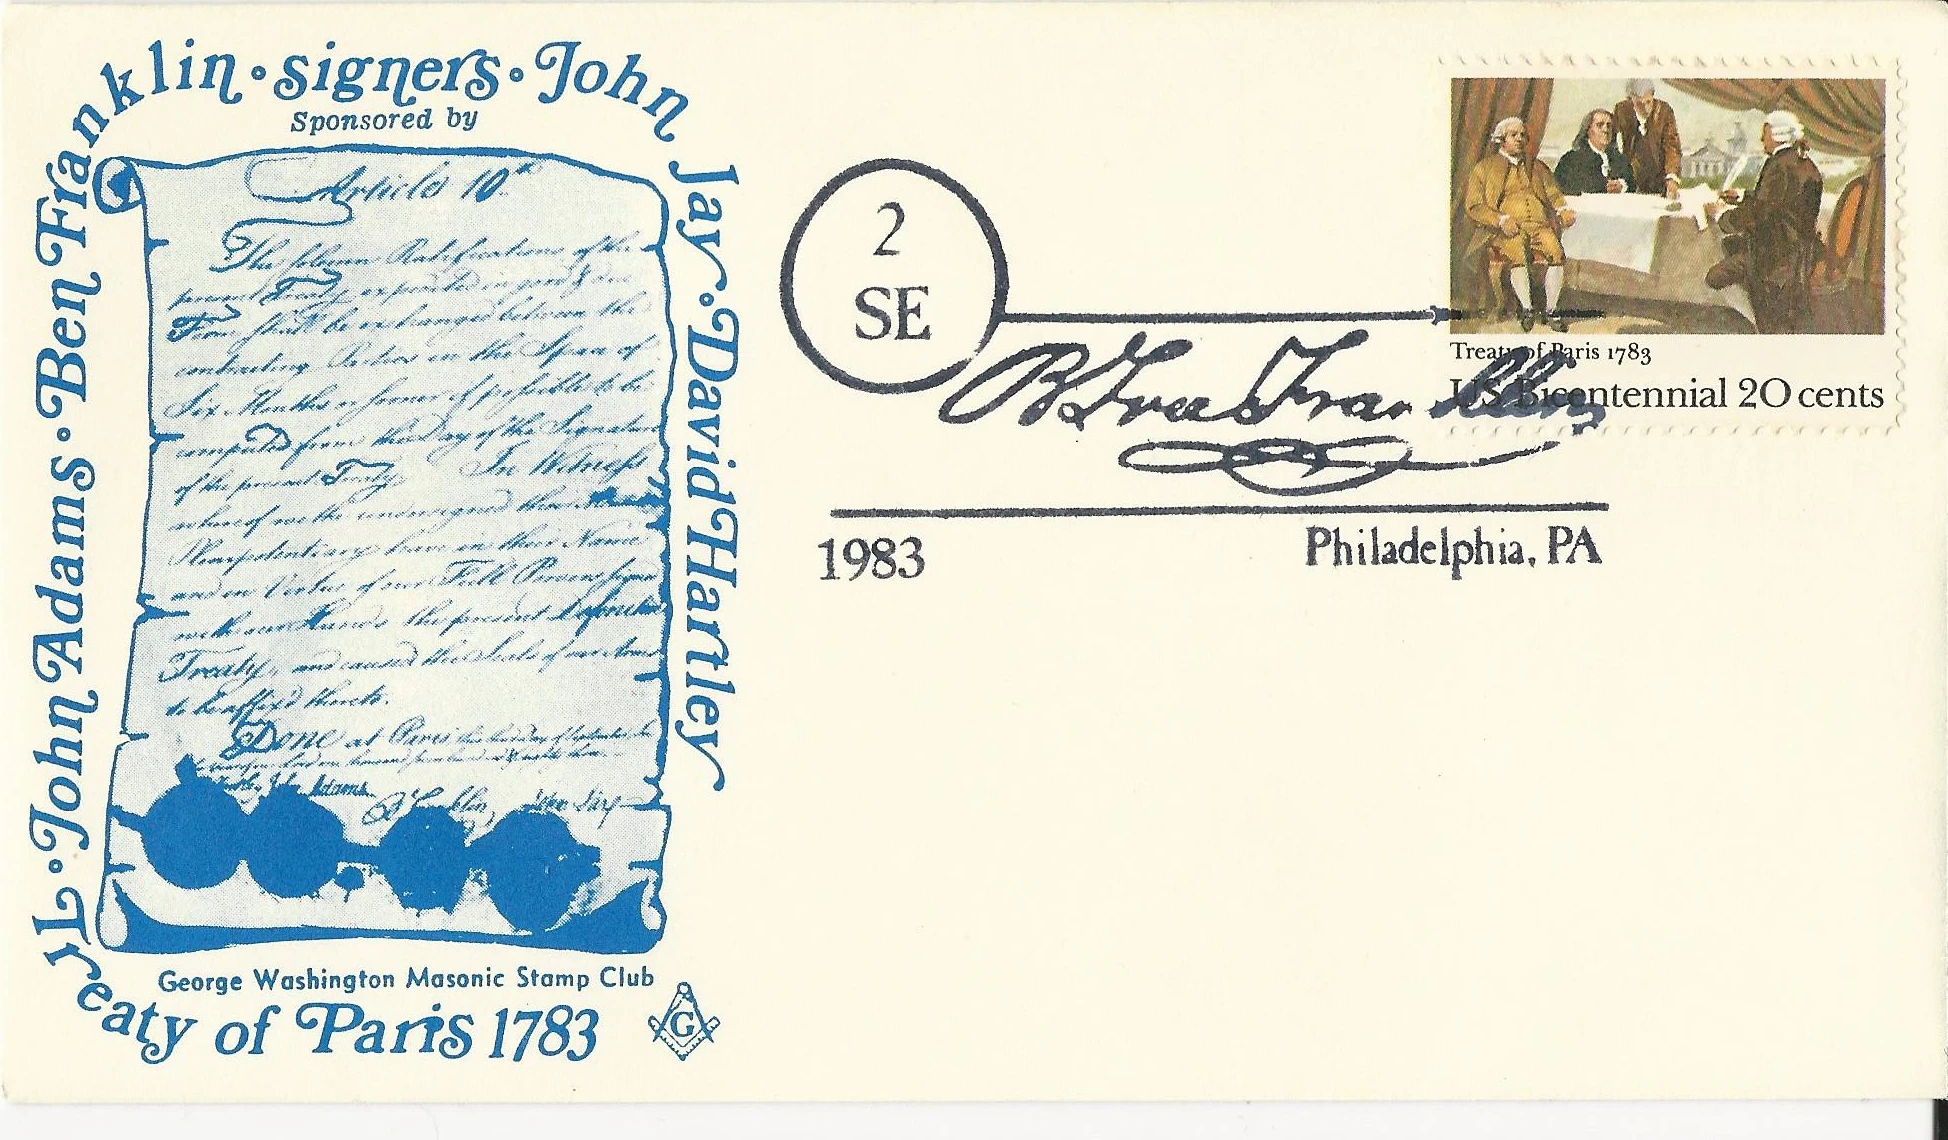 Treaty of Paris 1783 · John Adams · Ben Franklin · signers · John Jay · David Hartley
Sponsored by
Article 10th
The solemn Ratifications of the
present Treaty expedited in good & due
Form shall be exchanged between the
contracting Parties in the Space of
Six Months or sooner if possible to be
computed from the Day of the Signature
of the present Treaty. In Witness
whereof we the undersigned their
Plenipotentiary have in their Name
and in Virtue of our Full Powers
with our Hands the present
Treaty, and caused the Seals of our Arms
to be affix'd thereto.
Done at Paris
John Adams
B Franklin
John Jay
George Washington Masonic Stamp Club
G
2
SE
B Free Franklin
1983
Philadelphia, PA
Treaty of Paris 1783
US Bicentennial 20 cents